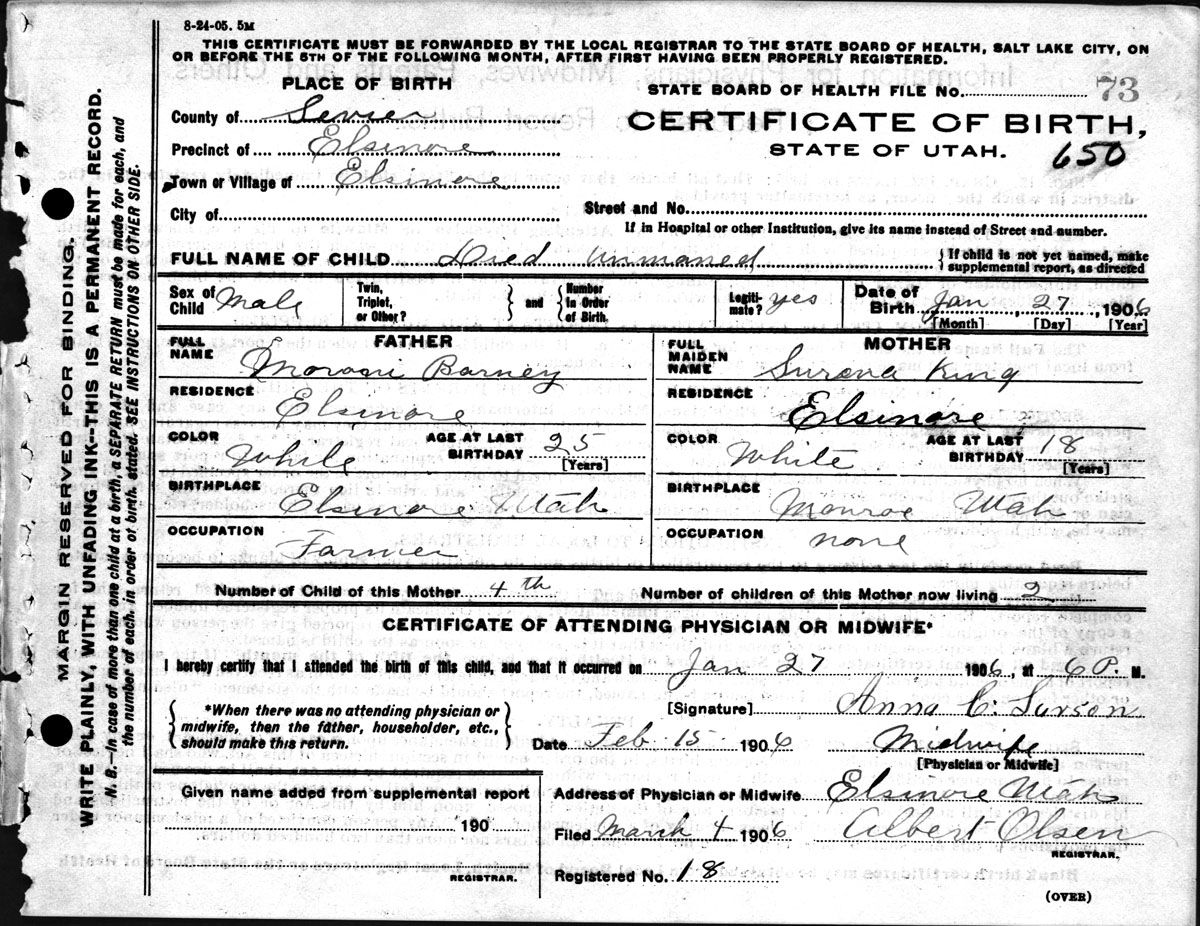 8-24-05. 5M
THIS CERTIFICATE MUST BE FORWARDED BY THE LOCAL REGISTRAR TO THE STATE BOARD OF HEALTH, SALT LAKE CITY, ON
OR BEFORE THE 5TH OF THE FOLLOWING MONTH, AFTER FIRST HAVING BEEN PROPERLY REGISTERED.
PLACE OF BIRTH
STATE BOARD OF HEALTH FILE No. 73
County of Sevier
CERTIFICATE OF BIRTH,
Precinct of Elsinore
STATE OF UTAH.
650
Town or Village of Elsinore
City of
Street and No.
If in Hospital or other Institution, give its name instead of Street and number.
FULL NAME OF CHILD Died Unnamed
{ If child is not yet named, make
supplemental report, as directed
Sex of Child Male
Twin, Triplet, or Other? } and { Number In Order of Birth.
Legiti- mate? yes
Date of Birth Jan 27, 1906
[Month] [Day] [Year]
FATHER
FULL NAME Moroni Barney
RESIDENCE Elsinore
COLOR White AGE AT LAST BIRTHDAY 25
[Years]
BIRTHPLACE Elsinore Utah
OCCUPATION Farmer
MOTHER
FULL MAIDEN NAME Surena King
RESIDENCE Elsinore
COLOR White AGE AT LAST BIRTHDAY 18
[Years]
BIRTHPLACE Monroe Utah
OCCUPATION none
Number of Child of this Mother 4th Number of children of this Mother now living 2
CERTIFICATE OF ATTENDING PHYSICIAN OR MIDWIFE*
I hereby certify that I attended the birth of this child, and that it occurred on Jan 27 1906, at 6 P. M.
{ *When there was no attending physician or
midwife, then the father, householder, etc.,
should make this return. }
[Signature] Anna C. Larson
Date Feb 15 1906 Midwife
[Physician or Midwife]
Given name added from supplemental report
190
REGISTRAR.
Address of Physician or Midwife Elsinore Utah
Filed March 4 1906 Albert Olsen
REGISTRAR.
Registered No. 18
(OVER)
MARGIN RESERVED FOR BINDING.
WRITE PLAINLY, WITH UNFADING INK--THIS IS A PERMANENT RECORD.
N. B.—In case of more than one child at a birth, a SEPARATE RETURN must be made for each, and
the number of each, in order of birth, stated. SEE INSTRUCTIONS ON OTHER SIDE.